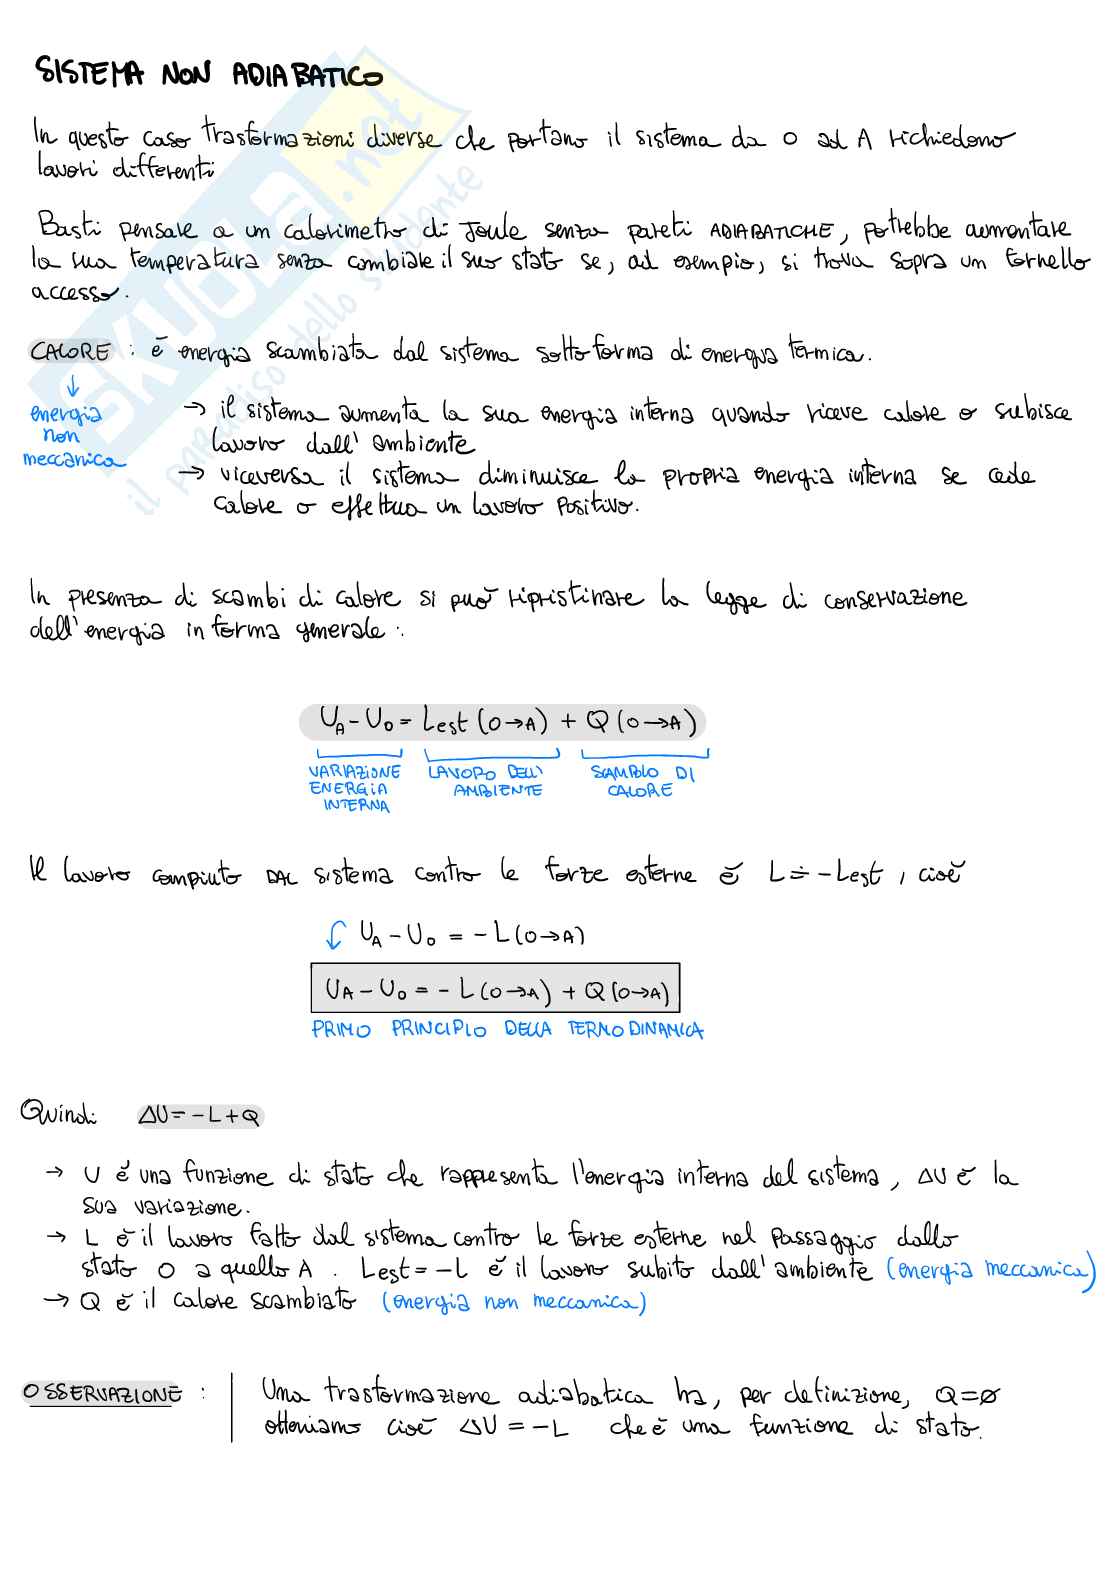 SISTEMA NON ADIABATICO
In questo caso trasformazioni diverse che portano il sistema da O ad A richiedono
lavori differenti
Basti pensare a un calorimetro di Joule senza pareti ADIABATICHE, potrebbe aumentare
la sua temperatura senza cambiare il suo stato se, ad esempio, si trova sopra un fornello
accesso.
CALORE : è energia scambiata dal sistema sotto forma di energia termica.
↓
energia
non
meccanica
→ il sistema aumenta la sua energia interna quando riceve calore o subisce
lavoro dall'ambiente
→ viceversa il sistema diminuisce la propria energia interna se cede
calore o effettua un lavoro positivo.
In presenza di scambi di calore si può ripristinare la legge di conservazione
dell'energia in forma generale :
U_A - U_0 = Lest (O→A) + Q (O→A)
VARIAZIONE ENERGIA INTERNA
LAVORO DELL' AMBIENTE
SCAMBIO DI CALORE
Il lavoro compiuto DAL sistema contro le forze esterne è L ≐ -Lest , cioè
U_A - U_0 = - L (O→A)
U_A - U_0 = - L (O→A) + Q (O→A)
PRIMO PRINCIPIO DELLA TERMODINAMICA
Quindi ΔU = - L + Q
→ U è una funzione di stato che rappresenta l'energia interna del sistema, ΔU è la
sua variazione.
→ L è il lavoro fatto dal sistema contro le forze esterne nel passaggio dallo
stato O a quello A . Lest = -L è il lavoro subito dall'ambiente (energia meccanica)
→ Q è il calore scambiato (energia non meccanica)
OSSERVAZIONE : Una trasformazione adiabatica ha, per definizione, Q=∅
otteniamo cioè ΔU = -L che è una funzione di stato.
SKUOLA.net
il paradiso dello studente